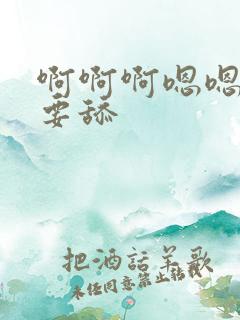 啊啊啊嗯嗯
要舔
把酒话羊歌
未经同意禁止转载